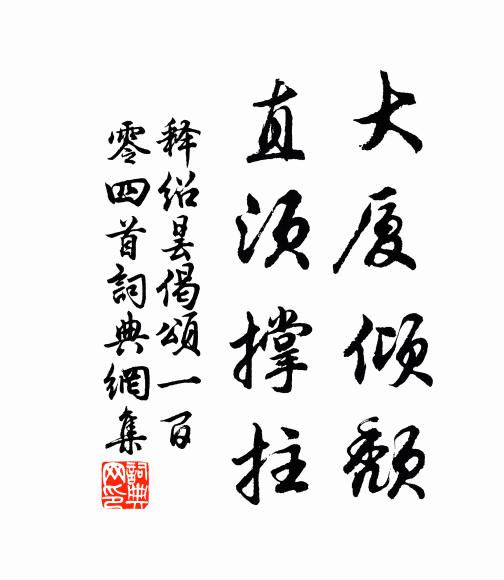 大厦倾颓
直须撑拄
释绍昙偈颂一百
零四首詞典網集
詞典网印